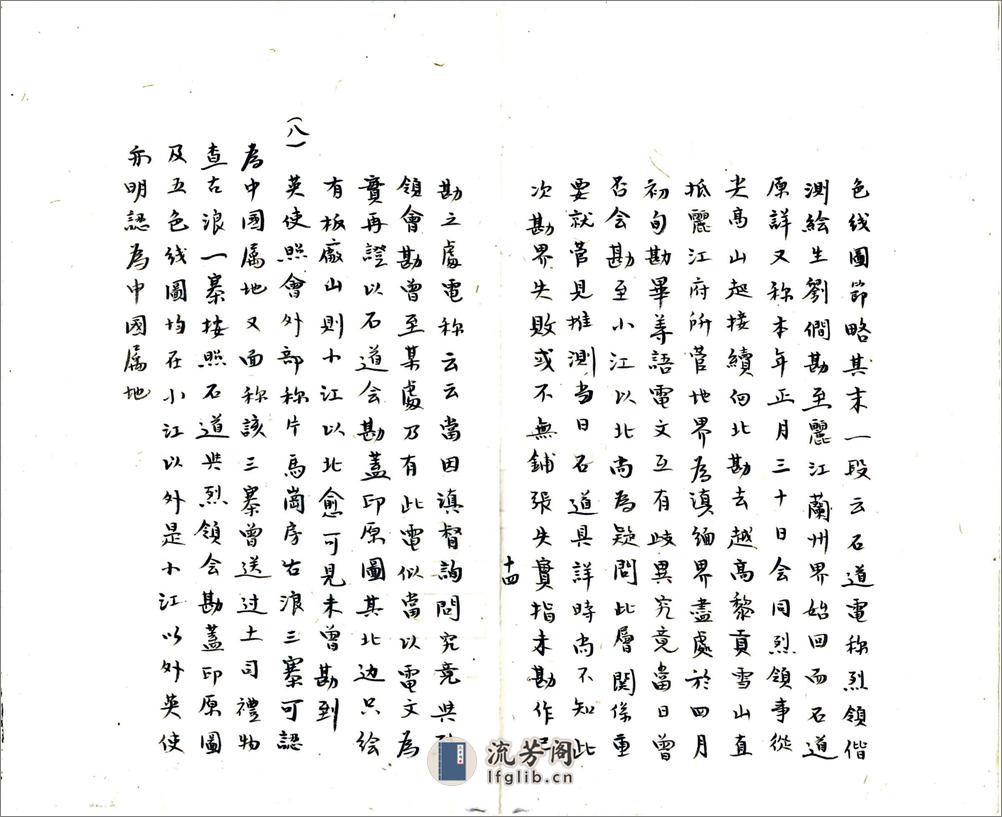 色线图節略其末一段云石道電称烈領偕
測绘生劉僩勘至麗江蘭州界始回而石道
原詳又称本年正月三十日会同烈領事從
尖高山起接續向北勘去越高黎貢雪山直
抵麗江府所管地界為滇缅界盡處於四月
初旬勘畢等語電文互有歧異究竟當日曾
否会勘至小江以北尚為疑問此層関係重
要就管見推測当日石道具詳時尚不知此
次勘界失敗或不無鋪張失實指未勘作已
十四
勘之處電称云云當因滇督詢問究竟與烈
領會勘曾至某處乃有此電似當以電文為
實再證以石道会勘蓋印原圖其北边只绘
有板廠山則小江以北愈可見未曾勘到
(八)
英使照會外部称片馬崗房古浪三寨可認
為中國属地又面称該三寨曾送过土司禮物
查古浪一寨按照石道與烈領会勘蓋印原圖
及五色线圖均在小江以外是小江以外英使
亦明認為中國属地
流芳阁
lfglib.cn